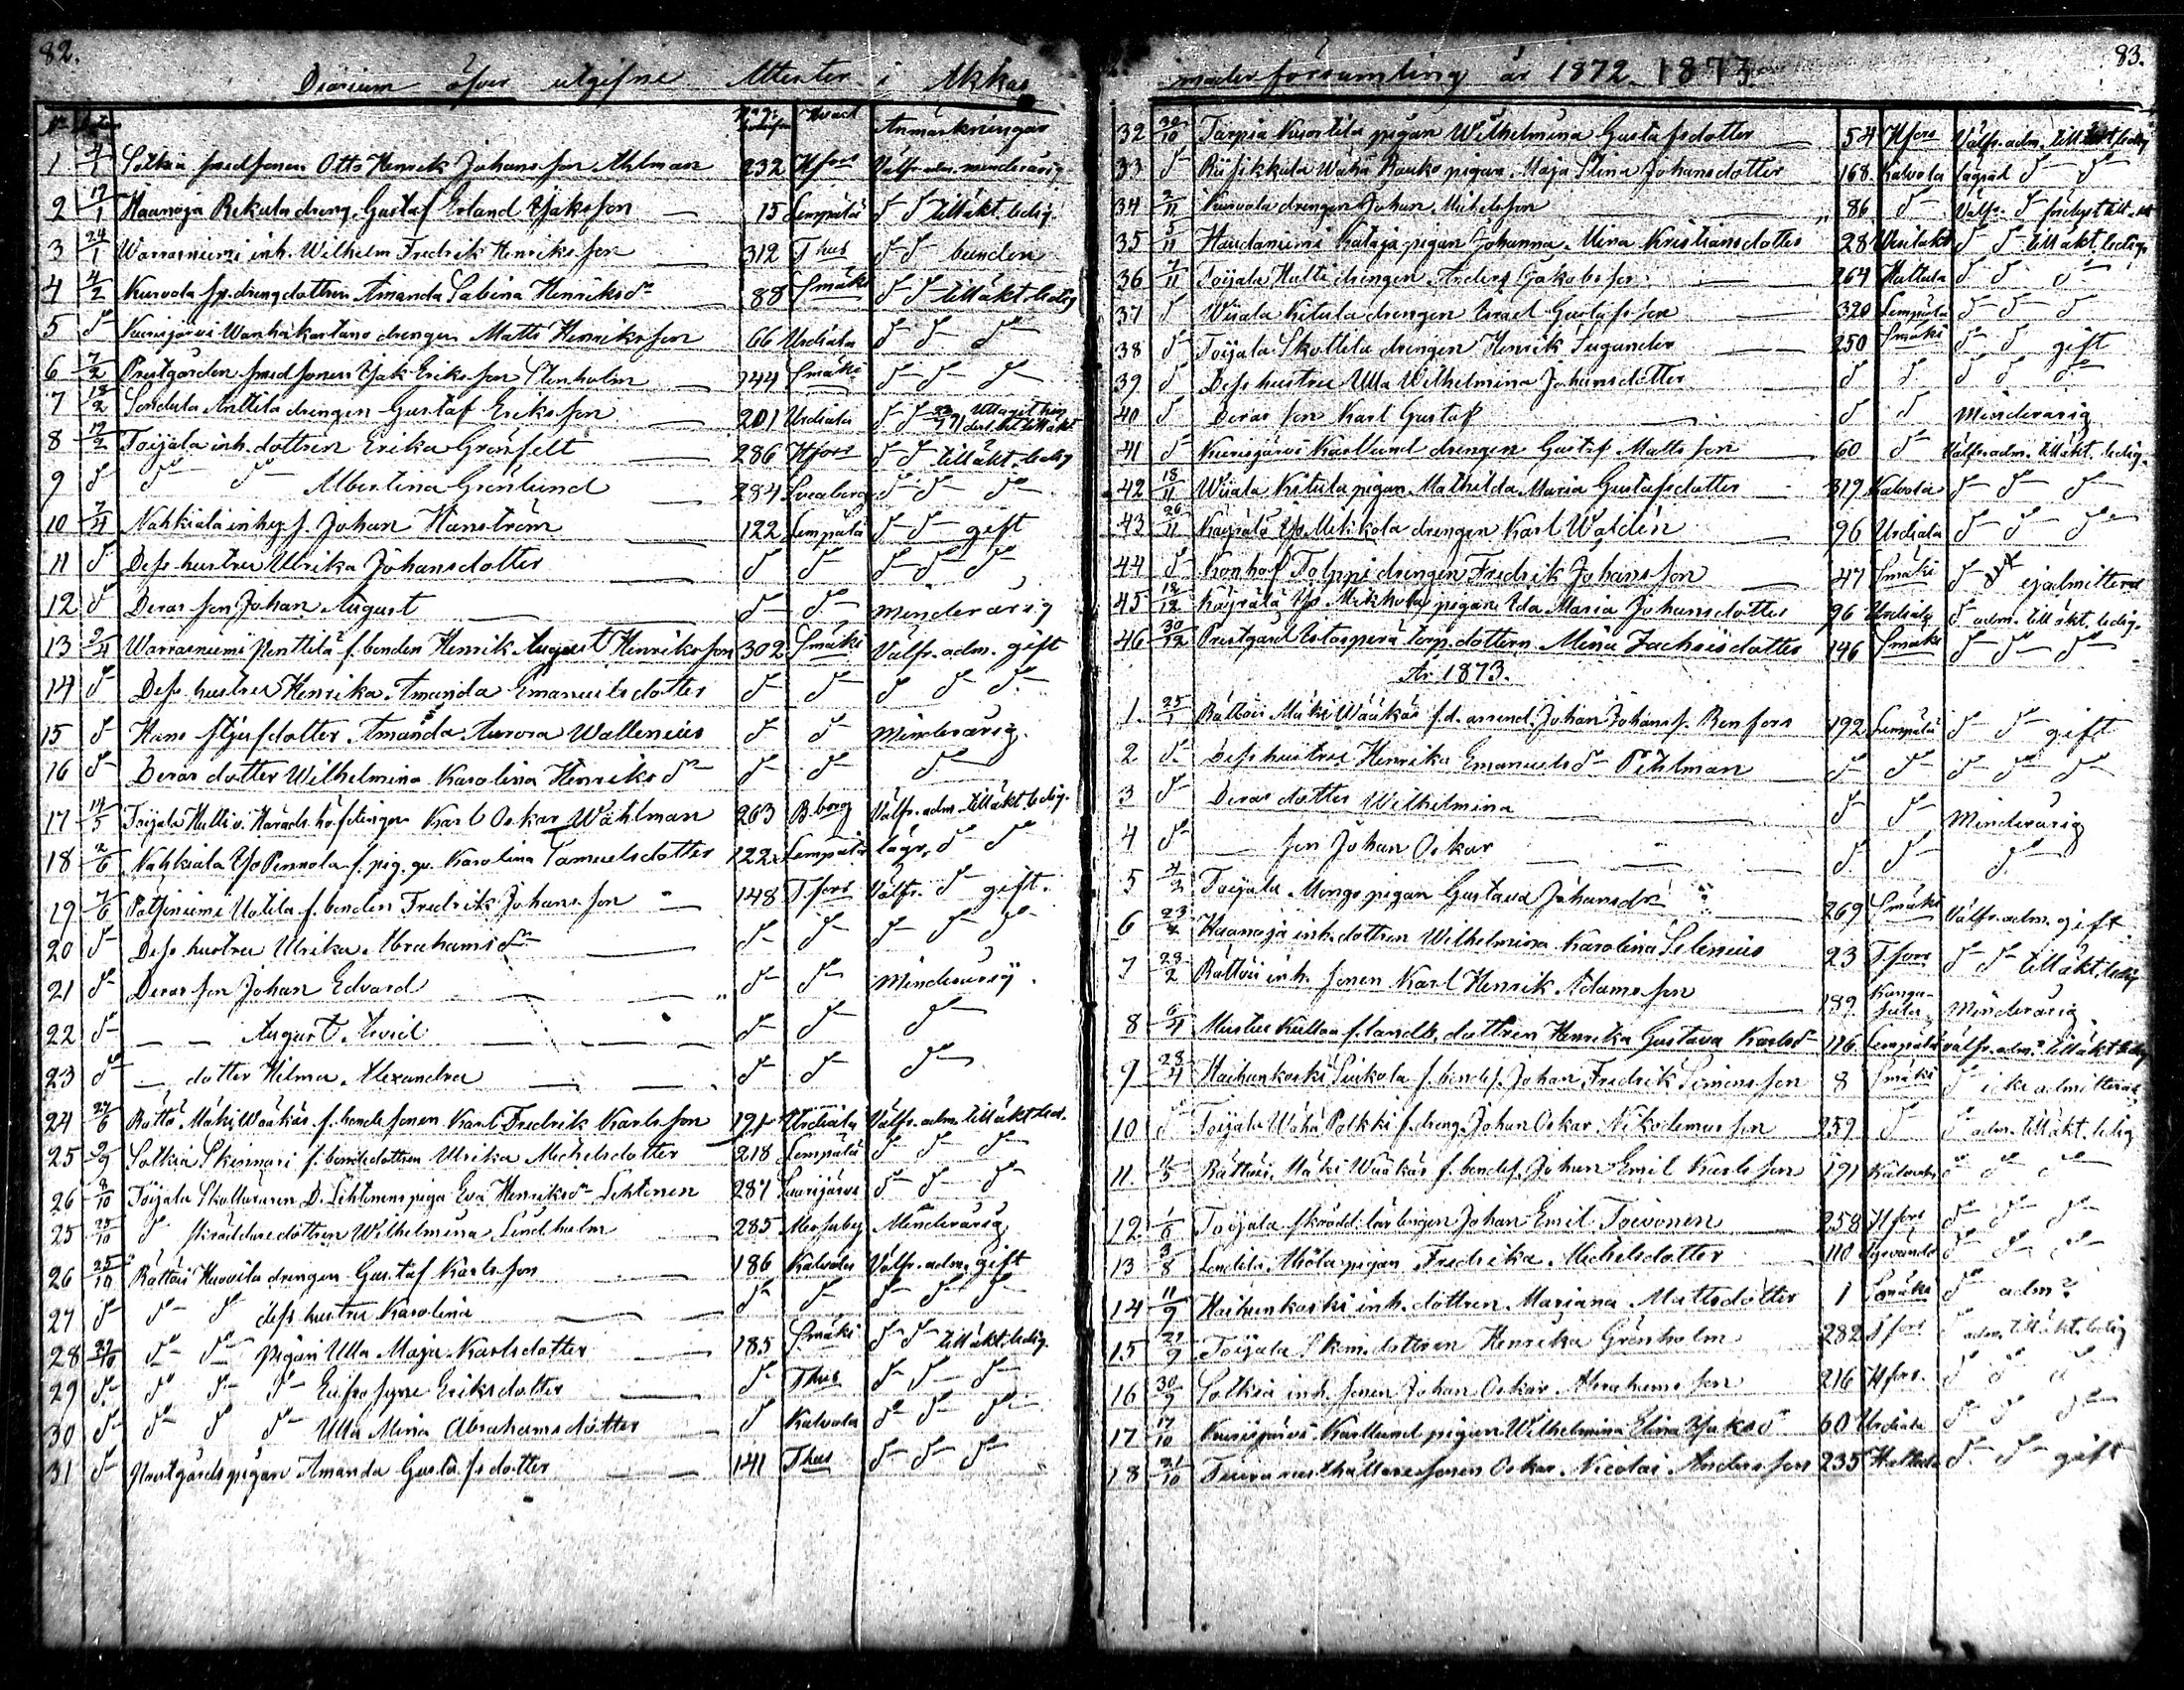 82.
Diarium öfver utgifne Attester i Akkas
No Datum No i Kyrkoboken Hvart Anmärkningar
1 4/1 Sotkia smedsonen Otto Henrik Johansson Ahlman 232 Hfors Välfr. adm. minderårig
2 17/1 Haanoja Rekula dreng. Gustaf Erland Isaksson 15 Lempälä d:o d:o till äkt. ledig.
3 24/1 Warrasniemi inh. Wilhelm Fredrik Henriksson 312 Thus d:o d:o bunden
4 4/2 Kurvola sp. drengdottren Amanda Sabina Henriksd:r 88 Smäki d:o d:o till äkt. ledig
5 d:o Kurisjärvi Wanhakartano drengen Matts Henriksson 66 Urdiala d:o d:o d:o
6 7/2 Prestgården smedsonen Isak Eriksson Stenholm 144 Smäki d:o d:o d:o
7 12/2 Sondula Anttila drengen Gustaf Eriksson 201 Urdiala d:o d:o
8 19/2 Toijala inh. dottren Erika Grönfelt 286 Hfors d:o d:o till äkt. ledig
9 d:o d:o d:o Albertina Grönlund 284 Sveaborg d:o d:o d:o
10 7/4 Nahkiala inhys. Johan Hanström 122 Lempälä d:o d:o gift
11 d:o Dess hustru Ulrika Johansdotter d:o d:o d:o d:o d:o
12 d:o Deras son Johan August d:o d:o Minderårig
13 9/4 Warrasniemi Penttilä f. bonden Henrik August Henriksson 302 Smäki Välfr. adm. gift
14 d:o Dess hustru Henrika Amanda Emanuelsdotter d:o d:o d:o d:o d:o
15 d:o Hans stjufdotter Amanda Aurora Wallenius d:o d:o Minderårig.
16 d:o Deras dotter Wilhelmina Karolina Henriksd:r d:o d:o d:o
17 14/5 Toijala Hulli v. Häradshöfdingen Karl Oskar Wahlman 263 B.borg Välfr. adm. till äkt. ledig.
18 2/6 Nahkiala Yli Pennola f. pig. qv. Karolina Samuelsdotter 122 Lempälä lägr. d:o d:o
19 7/6 Potjiniemi Uotila f. bonden Fredrik Johansson 148 T.fors Välfr. d:o gift.
20 d:o Dess hustru Ulrika Abrahamsd:r d:o d:o d:o d:o d:o
21 d:o Deras son Johan Edvard d:o d:o Minderårig.
22 d:o — — August Arvid d:o d:o d:o
23 d:o — dotter Hilma Alexandra d:o d:o d:o
24 27/6 Rättö Mäki Wääkäs f. bondesonen Karl Fredrik Karlsson 191 Urdiala Välfr. adm. till äkt. led.
25 9/9 Sotkia Skinnari f. bondedottren Ulrika Michelsdotter 218 Lempälä d:o d:o d:o
26 8/10 Toijala Skollararen D. Lehtonens piga Eva Henriksd:r Lehtonen 287 Saarijärvi d:o d:o d:o
25 25/10 d:o skräddaredottren Wilhelmina Lindholm 285 Messuby Minderårig
26 25/10 Rättöis Huovila drengen Gustaf Karlsson 186 Kalvola Välfr. adm. gift
27 d:o d:o d:o dess hustru Karolina d:o d:o d:o d:o d:o
28 29/10 d:o d:o pigan Ulla Maja Karlsdotter 185 Smäki d:o d:o till äkt. ledig.
29 d:o d:o d:o d:o Eufrosyne Eriksdotter d:o Thus d:o d:o d:o
30 d:o d:o d:o d:o Ulla Mina Abrahamsdotter d:o Kalvola d:o d:o d:o
31 d:o Prestgårds pigan Amanda Gustafsdotter 141 Thus d:o d:o d:o
83.
moderförsamling år 1872. 1873.
32 30/10 Tarpia Kuortila pigan Wilhelmina Gustafsdotter 54 Hfors Välfr. adm. till äkt. ledig
33 d:o Riisikkala Wähä Rauko pigan Maja Stina Johansdotter 168. Kalvola lägrad d:o d:o
34 2/11 Kurvola drengen Johan Michelsson 86 d:o Välfr. d:o
35 5/11 Haudaniemi Kataja pigan Johanna Mina Kristiansdotter 28 Wesilaks d:o d:o till äkt. ledig.
36 7/11 Toijala Hulli drengen Anders Jakobsson 264 Hattula d:o d:o d:o
37 d:o Wiiala Kitula drengen Israel Gustafsson 320 Lempälä d:o d:o d:o
38 d:o Toijala Skottila drengen Henrik Sugander 250 Smäki d:o d:o gift
39 d:o Dess hustru Ulla Wilhelmina Johansdotter d:o d:o d:o d:o d:o
40 d:o Deras son Karl Gustaf d:o d:o Minderårig
41 d:o Kurisjärvi Karllund drengen Gustaf Mattsson 60 d:o Välfr. adm. till äkt. ledig.
42 18/11 Wiiala Kitula pigan Mathilda Maria Gustafsdotter 319 Kalvola d:o d:o d:o
43 26/11 Käyrälä Yli Mikkola drengen Karl Waldén 96 Urdiala d:o d:o d:o
44 d:o Konhof Tolppi drengen Fredrik Johansson 47 Smäki d:o ej admitterad
45 12/12 Käyrälä Yli Mikkola pigan Ida Maria Johansdotter 96 Urdiala d:o adm. till äkt. ledig.
46 30/12 Prestgård torp. dottern Mina Zachrisdotter 146 Smäki d:o d:o d:o
År 1873.
1. 25/1 Rättöis Mäki Wääkäs f. d. arrend. Johan Johanss. Renfors 192 Lempälä d:o d:o gift
2 d:o Dess hustru Henrika Emanuelsd:r Pihlman d:o d:o d:o d:o d:o
3 d:o Deras dotter Wilhelmina d:o d:o Minderårig
4 d:o — son Johan Oskar d:o d:o d:o
5 4/2 Toijala Mongo pigan Gustava Johansd:r 269 Smäki Välfr. adm. gift
6 23/2 Haanoja inh. dottren Wilhelmina Karolina Selenius 23 T.fors d:o d:o till äkt. ledig
7 28/2 Rättöis inh. sonen Karl Henrik Adamsson 189. Kangasala Minderårig
8 6/4 Mustue Kullaa f. landb. dottren Henrika Gustava Karlsd:r 116. Lempälä välfr. adm. till äkt. ledig
9 28/4 Haihunkoski Siukola f. bondes. Johan Fredrik Simonsson 8 Smäki d:o icke admitterad
10 d:o Toijala Wähä Polkki f. dreng. Johan Oskar Nikodemusson 259 d:o d:o adm. till äkt. ledig
11. 11/5 Rättöis Mäki Wääkäs f. bondes. Johan Emil Karlsson 191 Kalvola d:o d:o d:o
12. 1/8 Toijala skrädd. lärlingen Johan Emil Toivonen 258 Hfors d:o d:o d:o
13 3/8 pigan Fredrika Michelsdotter 110 d:o d:o d:o
14 11/9 Haihunkoski inh. dottren Mariana Mattsdotter 1 Smäki d:o adm.
15 22/9 Toijala dottren Henrika Grönholm 282 Hfors d:o adm. till äkt. ledig
16 30/9 Sotkia inh. sonen Johan Oskar Abrahamsson 216 Hfors. d:o d:o d:o
17 17/10 Kurisjärvi Karllund pigan Wilhelmina Elina Isaksd:r 60 Urdiala d:o d:o d:o
18 21/10 rusthållaresonen Oskar Nicolai Andersson 235 Hattula d:o d:o gift